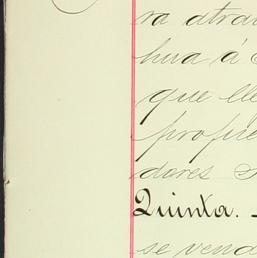 ra atra
hua á
que lle
profie
dores
Quinta. -
se vend